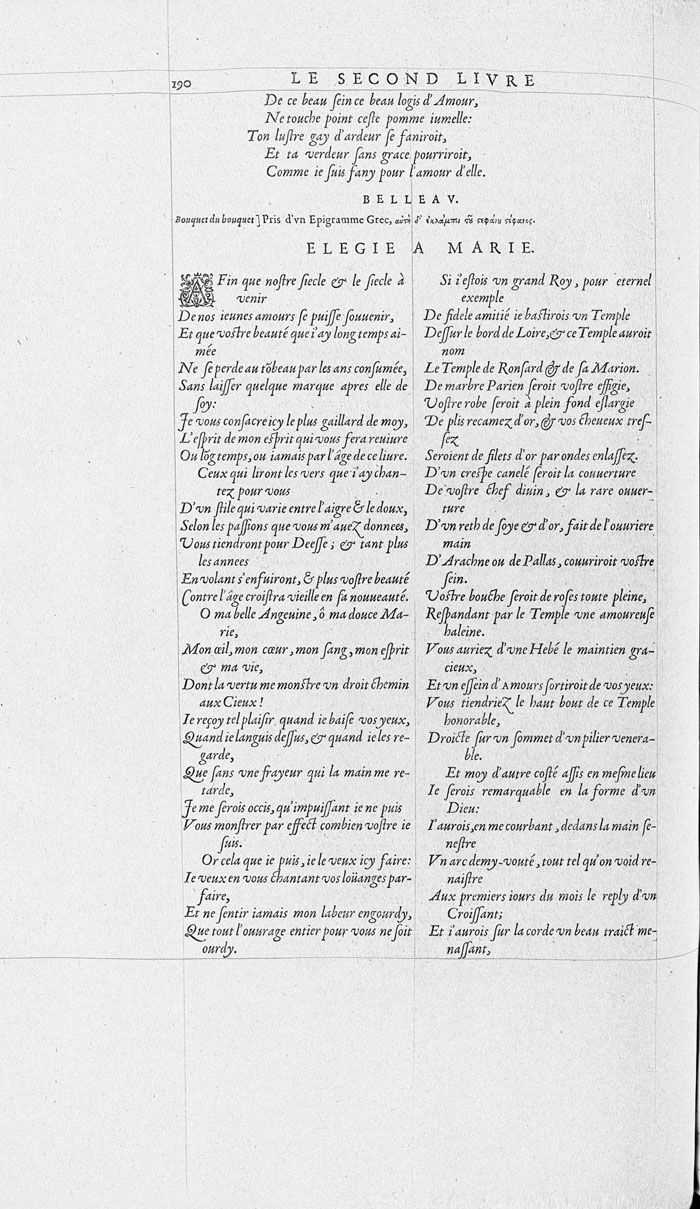 190
LE SECOND LIVRE
De ce beau ſein ce beau logis d'Amour,
Ne touche point ceſte pomme iumelle:
Ton luſtre gay d'ardeur ſe faniroit,
Et ta verdeur ſans grace pourriroit,
Comme ie ſuis fany pour l'amour d'elle.
BELLEAV.
Bouquet du bouquet] Pris d'vn Epigramme Grec,
ELEGIE A MARIE.
AFin que noſtre ſiecle & le ſiecle à
venir
De nos ieunes amours ſe puiſſe ſouuenir,
Et que voſtre beauté que i'ay long temps ai-
mée
Ne ſe perde au tõbeau par les ans conſumée,
Sans laiſſer quelque marque apres elle de
ſoy:
Je vous conſacre icy le plus gaillard de moy,
L'eſprit de mon eſprit qui vous fera reuiure
Ou lõg temps, ou iamais par l'âge de ce liure.
Ceux qui liront les vers que i'ay chan-
tez pour vous
D'vn ſtile qui varie entre l'aigre & le doux,
Selon les paſſions que vous m'auez donnees,
Vous tiendront pour Deeſſe; & tant plus
les annees
En volant s'enfuiront, & plus voſtre beauté
Contre l'âge croiſtra vieille en ſa nouueauté.
O ma belle Angeuine, ô ma douce Ma-
rie,
Mon œil, mon cœur, mon ſang, mon eſprit
& ma vie,
Dont la vertu me monſtre vn droit chemin
aux Cieux!
Ie reçoy tel plaiſir quand ie baiſe vos yeux,
Quand ie languis deſſus, & quand ie les re-
garde,
Que ſans vne frayeur qui la main me re-
tarde,
Je me ſerois occis, qu'impuiſſant ie ne puis
Vous monſtrer par effect combien voſtre ie
ſuis.
Or cela que ie puis, ie le veux icy faire:
Ie veux en vous chantant vos loüanges par-
faire,
Et ne ſentir iamais mon labeur engourdy,
Que tout l'ouurage entier pour vous ne ſoit
ourdy.
Si i'eſtois vn grand Roy, pour eternel
exemple
De fidele amitié ie baſtirois vn Temple
Deſſur le bord de Loire, & ce Temple auroit
nom
Le Temple de Ronſard & de ſa Marion.
De marbre Parien ſeroit voſtre effigie,
Voſtre robe ſeroit à plein fond eſlargie
De plis recamez d'or, & vos cheueux treſ-
ſez
Seroient de filets d'or par ondes enlaſſez.
D'vn creſpe canelé ſeroit la couuerture
De voſtre chef diuin, & la rare ouuer-
ture
D'vn reth de ſoye & d'or, fait de l'ouuriere
main
D'Arachne ou de Pallas, couuriroit voſtre
ſein.
Voſtre bouche ſeroit de roſes toute pleine,
Reſpandant par le Temple vne amoureuſe
haleine.
Vous auriez d'vne Hebé le maintien gra-
cieux,
Et vn eſſein d'Amours ſortiroit de vos yeux:
Vous tiendriez le haut bout de ce Temple
honorable,
Droicte ſur vn ſommet d'vn pilier venera-
ble.
Et moy d'autre coſté aſſis en meſme lieu
Ie ſerois remarquable en la forme d'vn
Dieu:
I'aurois, en me courbant, dedans la main ſe-
neſtre
Vn arc demy-vouté, tout tel qu'on void re-
naiſtre
Aux premiers iours du mois le reply d'vn
Croiſſant;
Et i'aurois ſur la corde vn beau traict me-
naſſant,